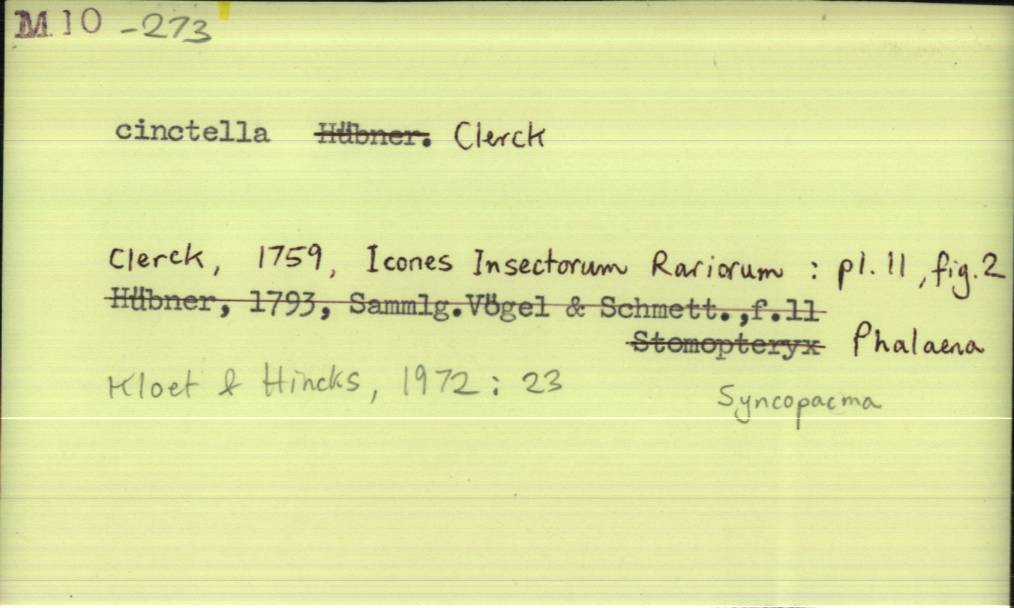 M 10 -273
cinctella Hübner. Clerck
Clerck, 1759, Icones Insectorum Rariorum : pl. 11, fig. 2
Hübner, 1793, Sammlg.Vögel & Schmett.,f.11
Stomopteryx Phalaena
Kloet & Hincks, 1972 : 23
Syncopacma